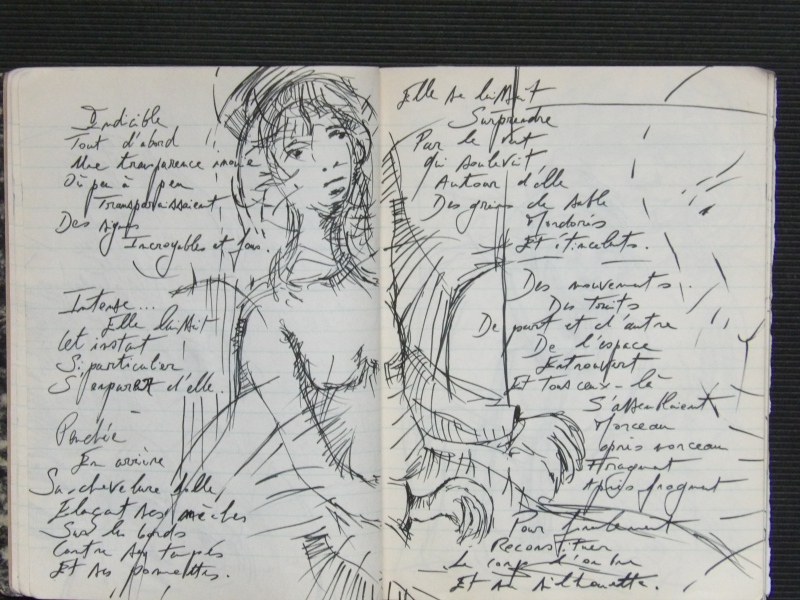 Indicible
Tout d'abord
Une transparence inouïe
Où peu à peu
Transparaissaient
Des signes
Incroyables et fous.
Intense...
Elle laissait
Cet instant
Si particulier
S'emparer d'elle.
Penchée
En arrière
Sa chevelure folle,
Elaçant ses mèches
Sur les bords
Contre ses tempes
Et ses pommettes.
Elle se laissait
Surprendre
Par le vent
Qui soulevait
Autour d'elle
Des grains de sable
Mordorés
Et étincelants.
Des mouvements.
Des traits
De part et d'autre
De l'espace
Entrouvert
Et tous ceux-là
S'assemblaient
Morceau
après morceau
Fragment
Après fragment
Pour finalement
Reconstituer
Le corps d'ombre
Et sa silhouette.